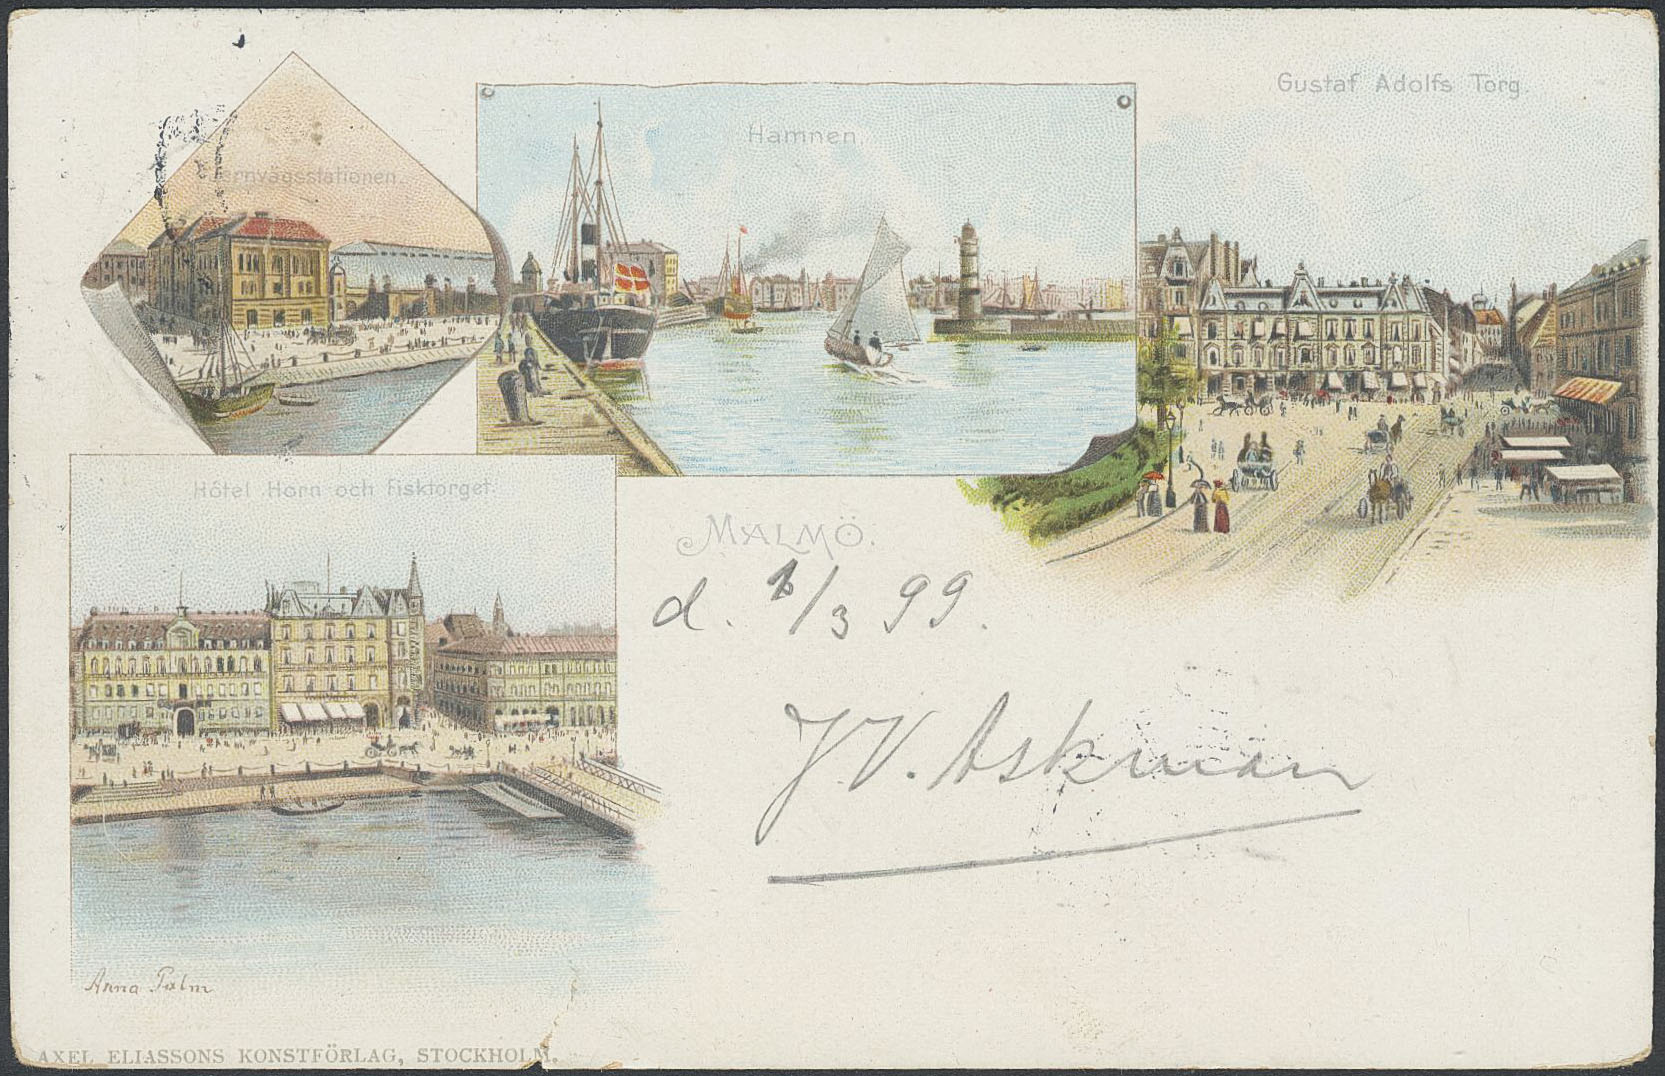 Gustaf Adolfs Torg.
Hamnen
Jernvägsstationen.
Hôtel Horn och Fisktorget.
MALMÖ.
d. /3 99.
J V. Askman
Anna Palm
AXEL ELIASSONS KONSTFÖRLAG, STOCKHOLM.